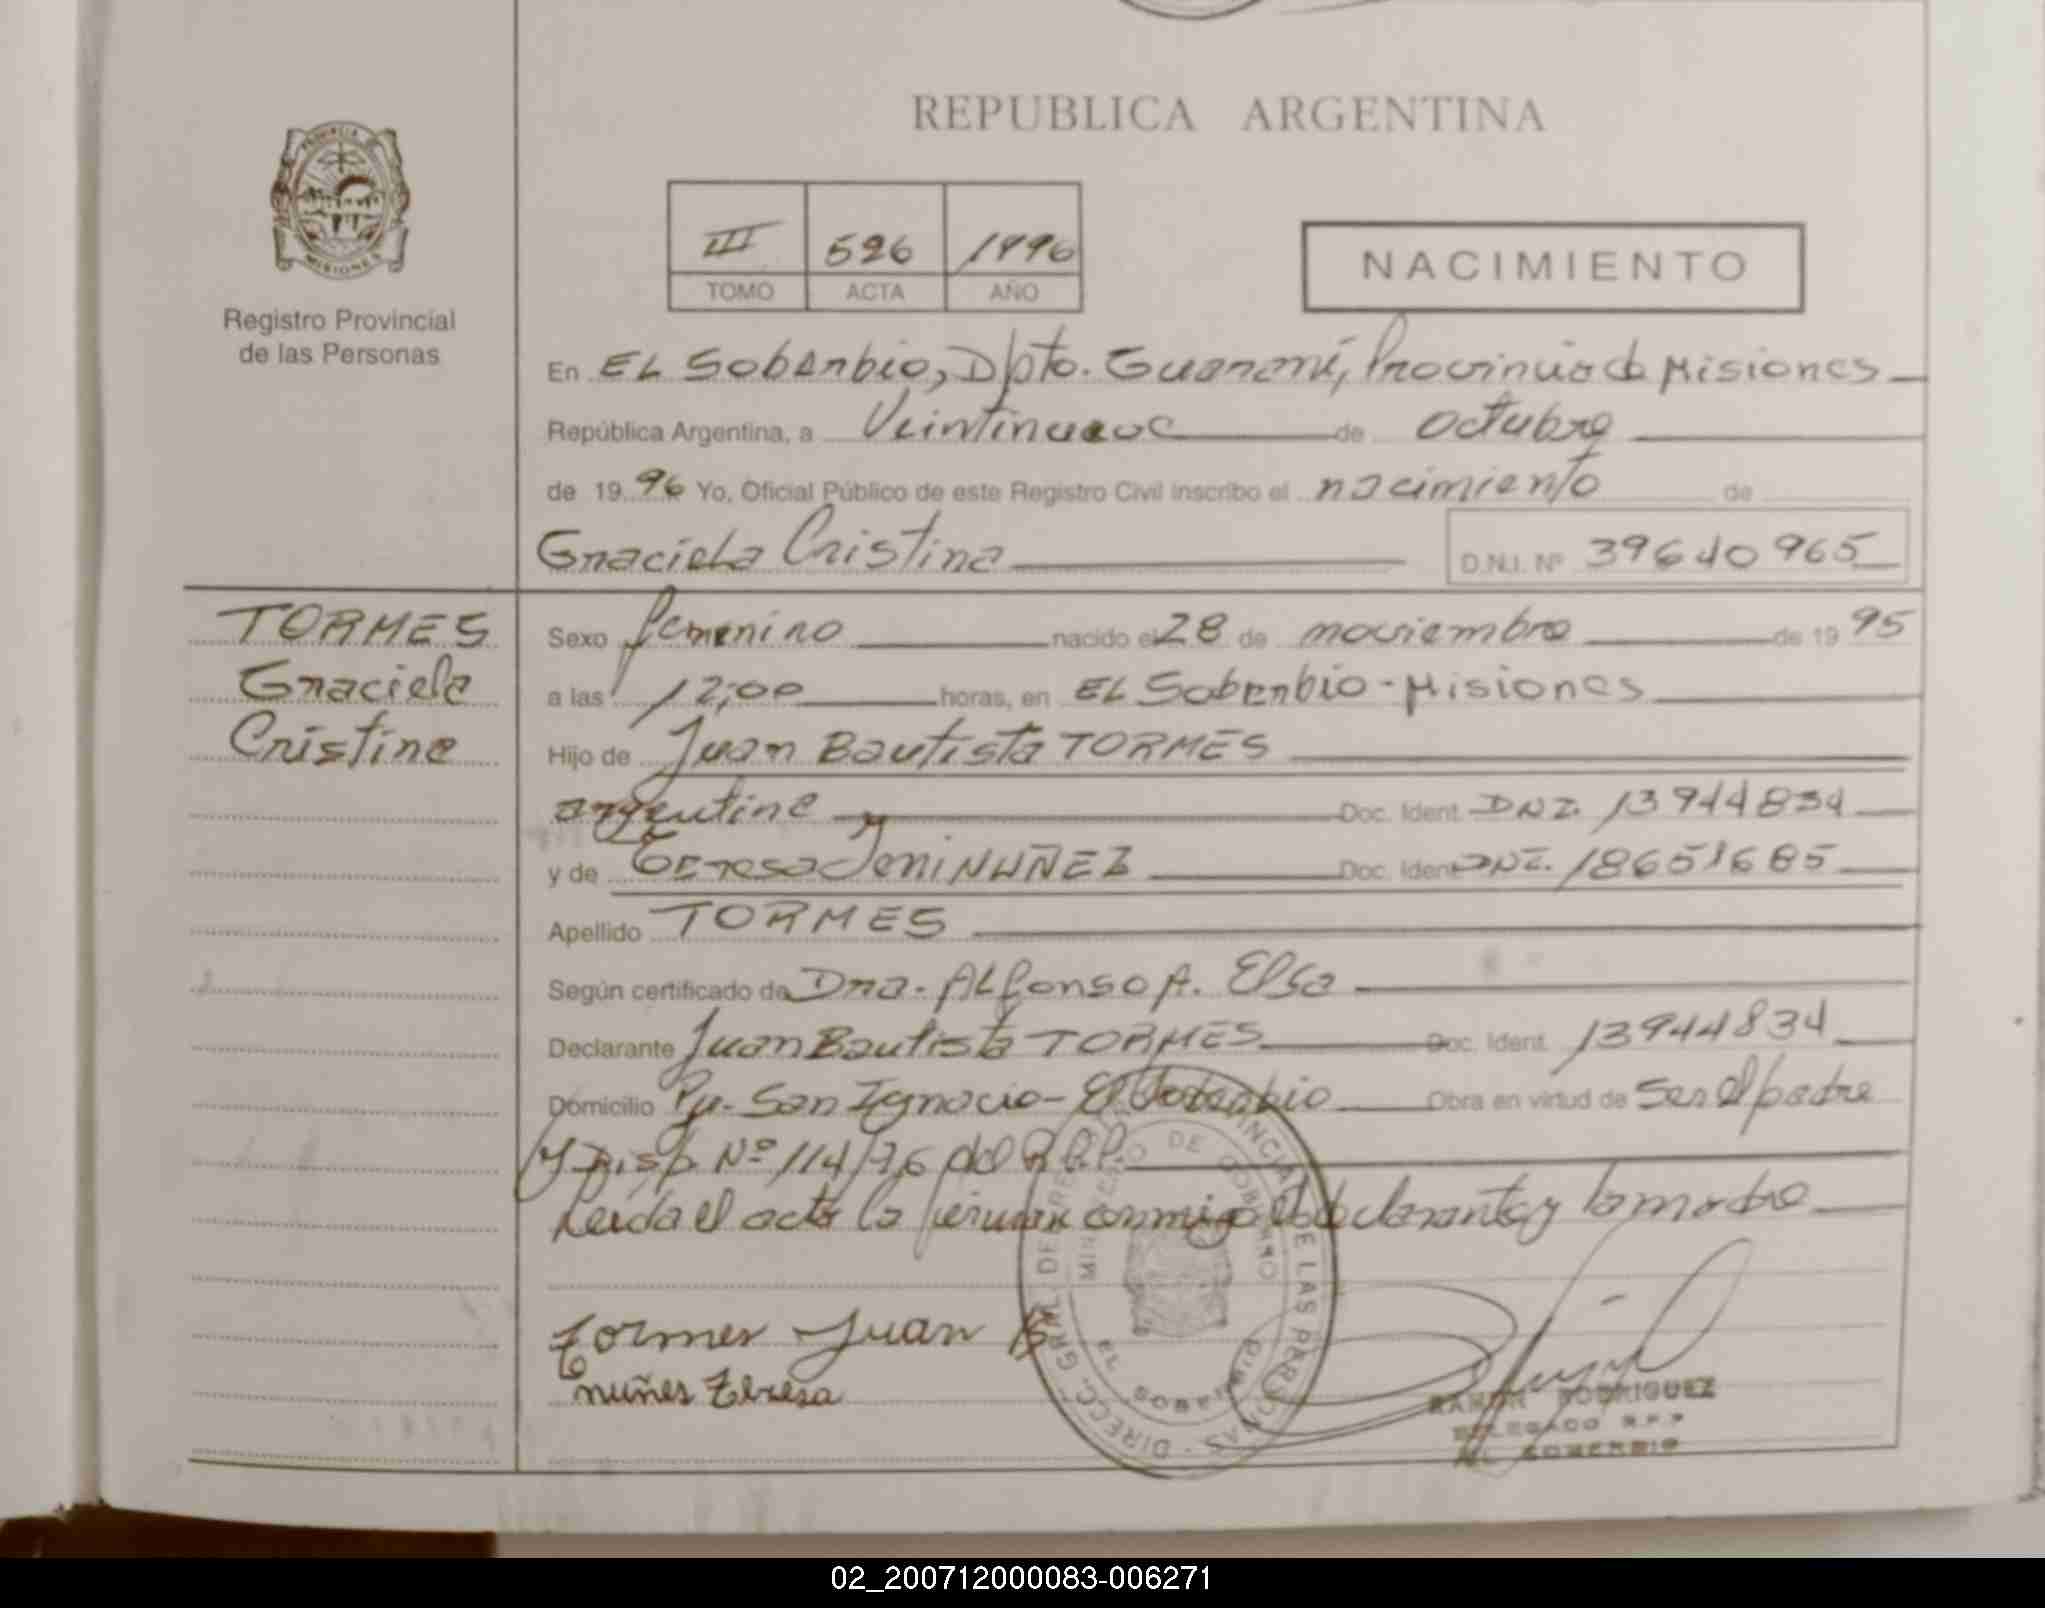 REPUBLICA ARGENTINA
PROVINCIA DE
MISIONES
Registro Provincial
de las Personas
III 526 1996
TOMO ACTA AÑO
NACIMIENTO
En EL Soberbio, Dpto. Guaraní, Provincia de Misiones
República Argentina, a Veintinueve de octubre
de 1996 Yo, Oficial Público de este Registro Civil inscribo el nacimiento de
Graciela Cristina D.N.I. Nº 39640965
TORMES
Graciela
Cristina
Sexo femenino nacido el 28 de noviembre de 1995
a las 12,00 horas, en EL Soberbio - Misiones
Hijo de Juan Bautista TORMES
argentina Doc. Ident. DNI. 13944834
y de Teresa Jeni NUÑEZ Doc. Ident. DNI. 18651685
Apellido TORMES
Según certificado de Dra. ALfonso A. Elsa
Declarante Juan Bautista TORMES Doc. Ident. 13944834
Domicilio San Ignacio - El Soberbio Obra en virtud de Ser el padre
y Disp. Nº 114/96 del R.P.P.
Leida el acta la firman conmigo el declarante y la madre
Tormes Juan B
nuñes teresa
DIRECC. GRAL. DEL REG. PROVINCIAL DE LAS PERSONAS
MINISTERIO DE GOBIERNO
EL SOBERBIO
RAMON RODRIGUEZ
DELEGADO R.P.P
EL SOBERBIO
02_200712000083-006271